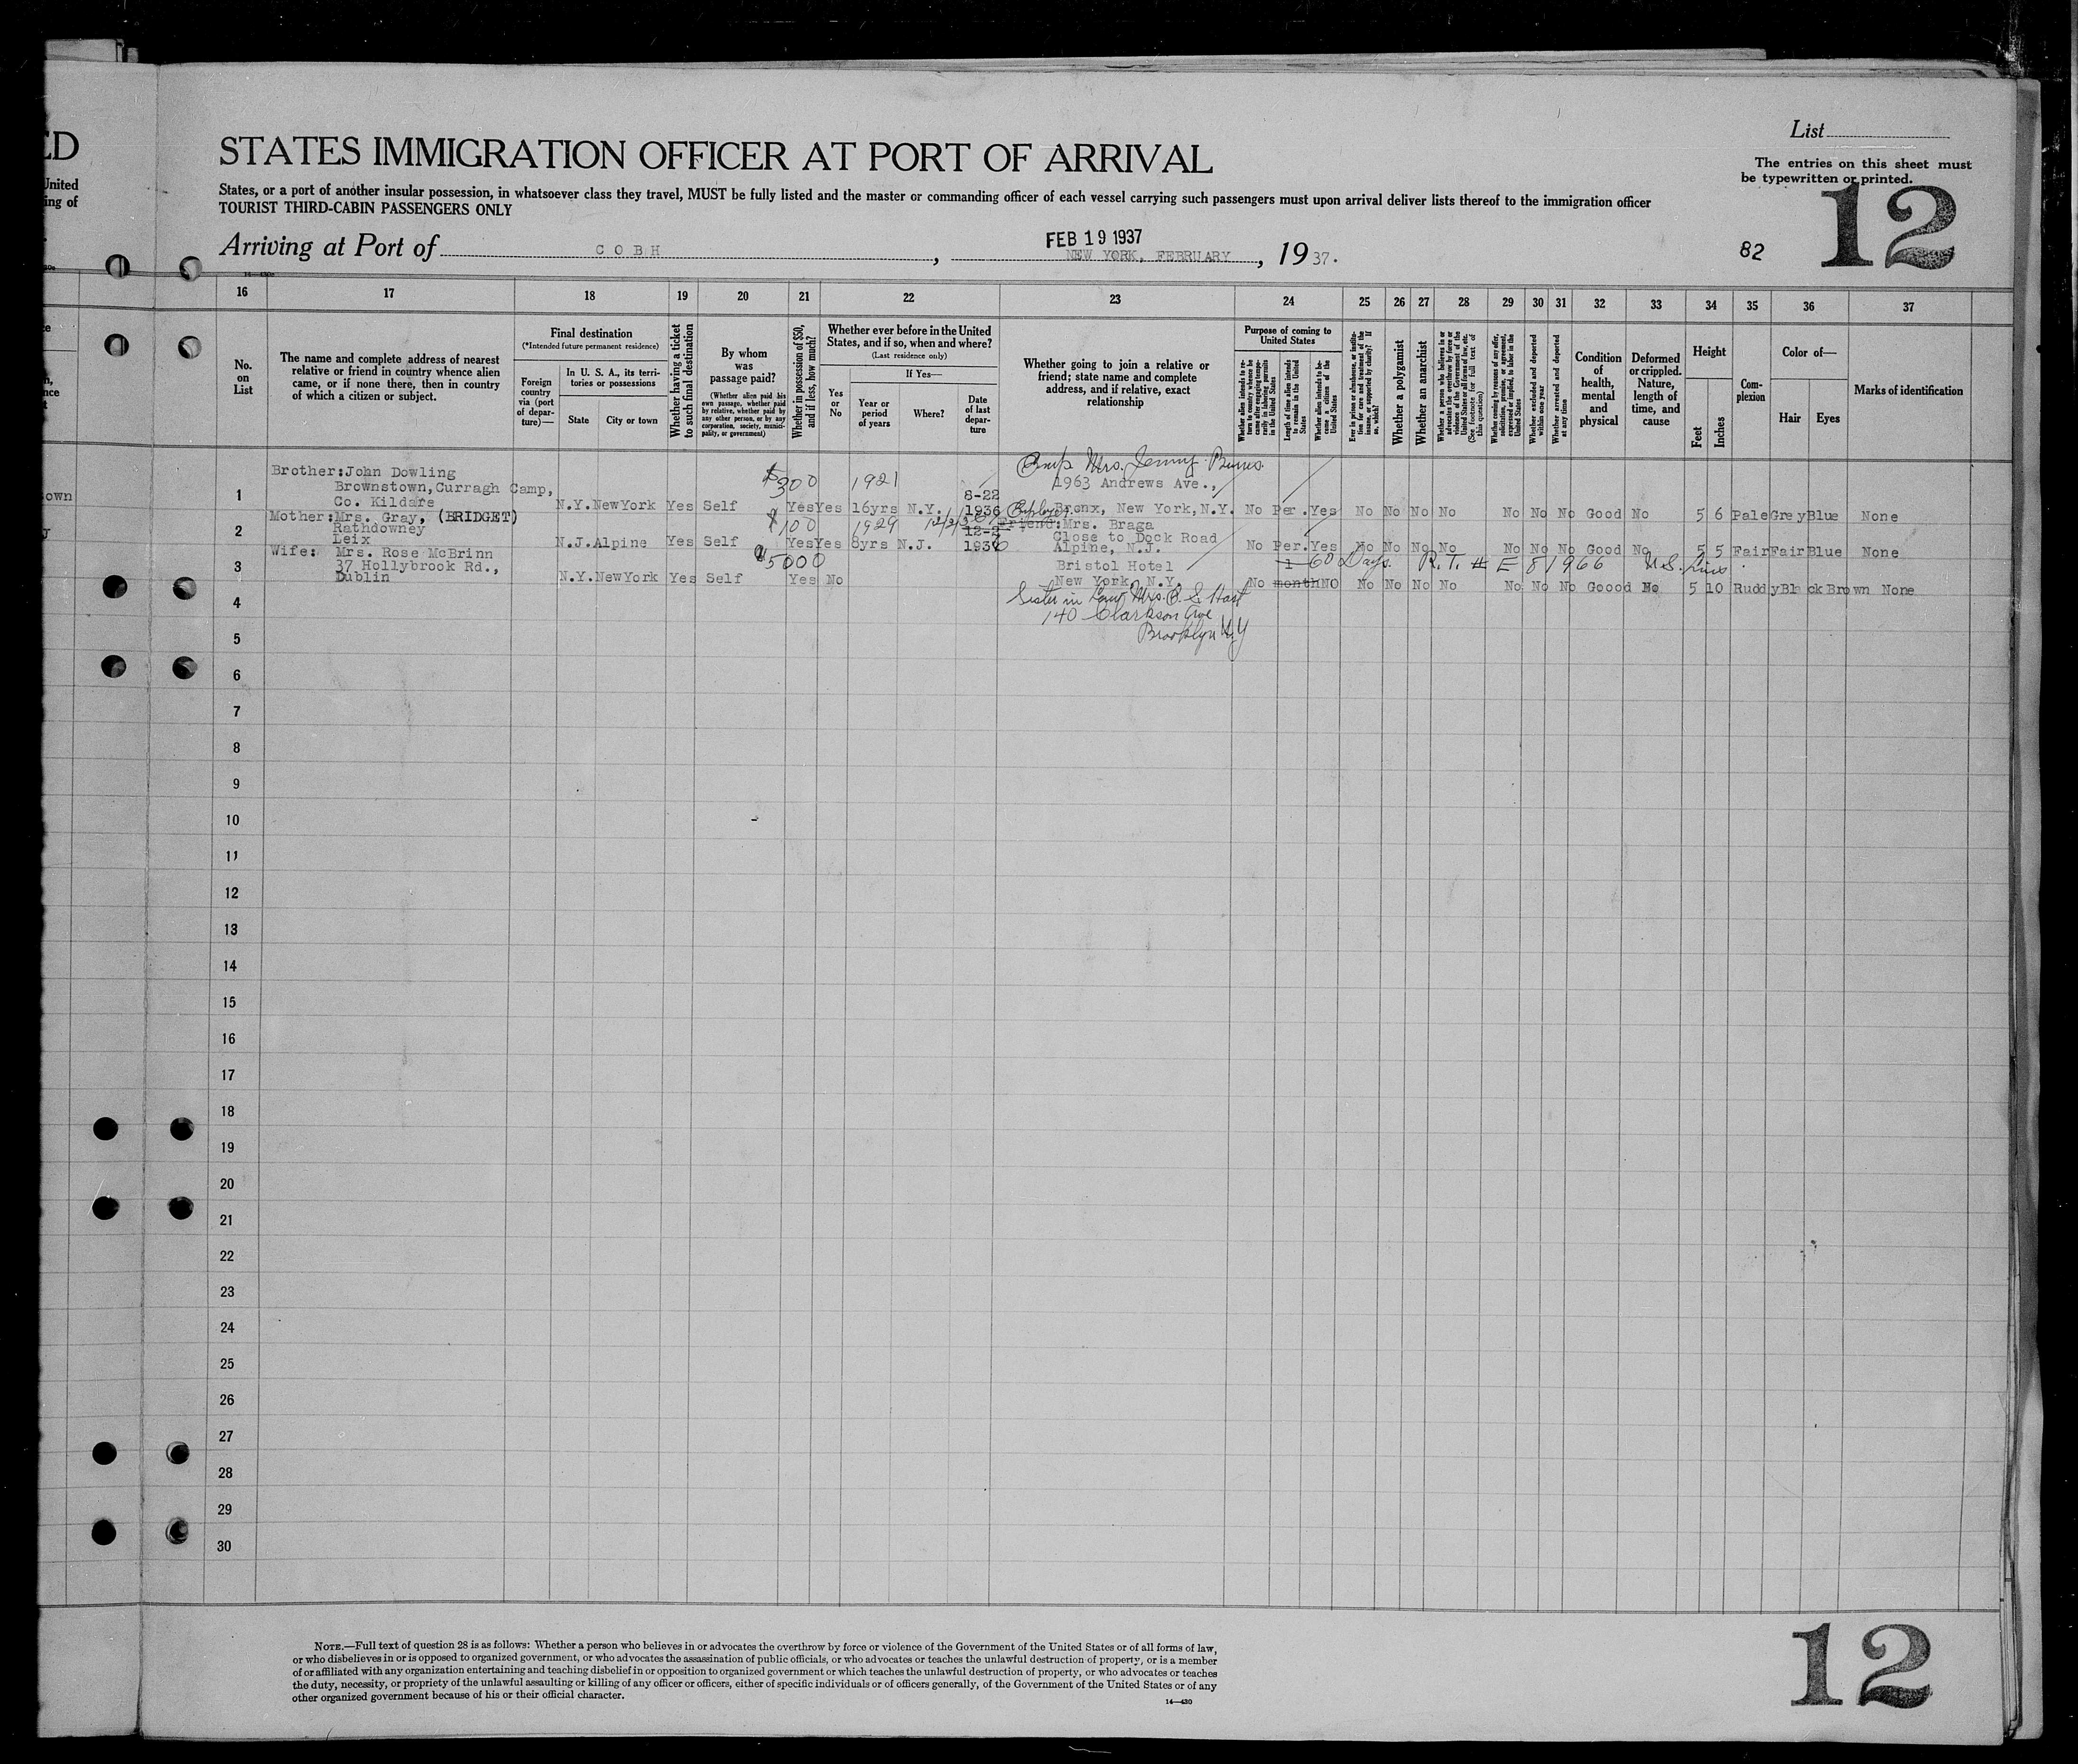 ED
United
ing of
List
STATES IMMIGRATION OFFICER AT PORT OF ARRIVAL
The entries on this sheet must
be typewritten or printed.
States, or a port of another insular possession, in whatsoever class they travel, MUST be fully listed and the master or commanding officer of each vessel carrying such passengers must upon arrival deliver lists thereof to the immigration officer
TOURIST THIRD-CABIN PASSENGERS ONLY
12
Arriving at Port of COBH, FEB 19 1937 NEW YORK, FEBRUARY, 1937.
82
16 17 18 19 20 21 22 23 24 25 26 27 28 29 30 31 32 33 34 35 36 37
No. on List
The name and complete address of nearest
relative or friend in country whence alien
came, or if none there, then in country
of which a citizen or subject.
Final destination
(*Intended future permanent residence)
Foreign country via (port of departure)—
In U. S. A., its territories or possessions
State
City or town
Whether having a ticket to such final destination
By whom was passage paid?
(Whether alien paid his own passage, whether paid by relative, whether paid by any other person, or by any corporation, society, municipality, or government)
Whether in possession of $50, and if less, how much?
Whether ever before in the United
States, and if so, when and where?
(Last residence only)
Yes or No
If Yes—
Year or period of years
Where?
Date of last departure
Whether going to join a relative or
friend; state name and complete
address, and if relative, exact
relationship
Purpose of coming to United States
Whether alien intends to return to country whence he came after engaging temporarily in laboring pursuits in the United States
Length of time alien intends to remain in the United States
Whether alien intends to become a citizen of the United States
Ever in prison or almshouse, or institution for care and treatment of the insane, or supported by charity? If so, which?
Whether a polygamist
Whether an anarchist
Whether a person who believes in or advocates the overthrow by force or violence of the Government of the United States or all forms of law, etc. (See footnote for full text of this question)
Whether coming by reasons of any offer, solicitation, promise, or agreement, expressed or implied, to labor in the United States
Whether excluded and deported within one year
Whether arrested and deported at any time
Condition of health, mental and physical
Deformed or crippled. Nature, length of time, and cause
Height
Feet
Inches
Complexion
Color of—
Hair
Eyes
Marks of identification
own
1 Brother:John Dowling
Brownstown,Curragh Camp,
Co. Kildare
N.Y. NewYork Yes Self $300 Yes Yes 1921 16yrs N.Y. 8-22 1936
Mrs. Jenny Burns
1963 Andrews Ave.,
Bronx, New York,N.Y.
No Per. Yes No No No No No No No Good No 5 6 Pale Grey Blue None
2 Mother:Mrs. Gray, (BRIDGET)
Rathdowney
Leix
N.J. Alpine Yes Self $100 Yes Yes 1929 8yrs N.J. 12-2 1936
Employer
Friend:Mrs. Braga
Close to Dock Road
Alpine, N.J.
No Per. Yes No No No No No No No Good No 5 5 Fair Fair Blue None
3 Wife: Mrs. Rose McBrinn
37 Hollybrook Rd.,
Dublin
N.Y. NewYork Yes Self $5000 Yes No
Bristol Hotel
New York, N.Y.
1 month 60 Days. R.T. # E 81966 U.S. Lines
No NO No No No No No No No Goood No 5 10 Ruddy Black Brown None
Sister in Law Mrs. C. S. Hast
140 Clarkson Ave
Brooklyn NY
4
5
6
7
8
9
10
11
12
13
14
15
16
17
18
19
20
21
22
23
24
25
26
27
28
29
30
NOTE.—Full text of question 28 is as follows: Whether a person who believes in or advocates the overthrow by force or violence of the Government of the United States or of all forms of law,
or who disbelieves in or is opposed to organized government, or who advocates the assassination of public officials, or who advocates or teaches the unlawful destruction of property, or is a member
of or affiliated with any organization entertaining and teaching disbelief in or opposition to organized government or which teaches the unlawful destruction of property, or who advocates or teaches
the duty, necessity, or propriety of the unlawful assaulting or killing of any officer or officers, either of specific individuals or of officers generally, of the Government of the United States or of any
other organized government because of his or their official character.
14—430
12